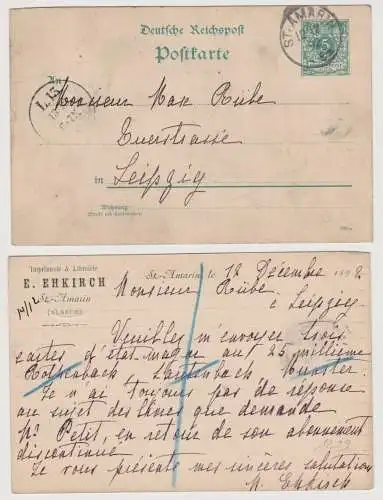 Deutsche Reichspost
Postkarte
ST. AMARIN
5
An Monsieur Max Rübe
L. 13.
Querstrasse
in Leipzig
Wohnung
Imprimerie & Librairie
E. EHKIRCH
St-Amarin
(ALSACE)
14/12
St-Amarin le 12 Décembre
Monsieur Rübe,
à Leipzig
Veuillez m'envoyer trois
cartes d'état-major au 25 millième
Rothenbach Lautenbach Munster.
Je n'ai toujours pas de réponse
au sujet des livres que demande
Mr Petit, en retour de son abonnement
discontinué
Je vous présente mes sincères salutations
Ehkirch